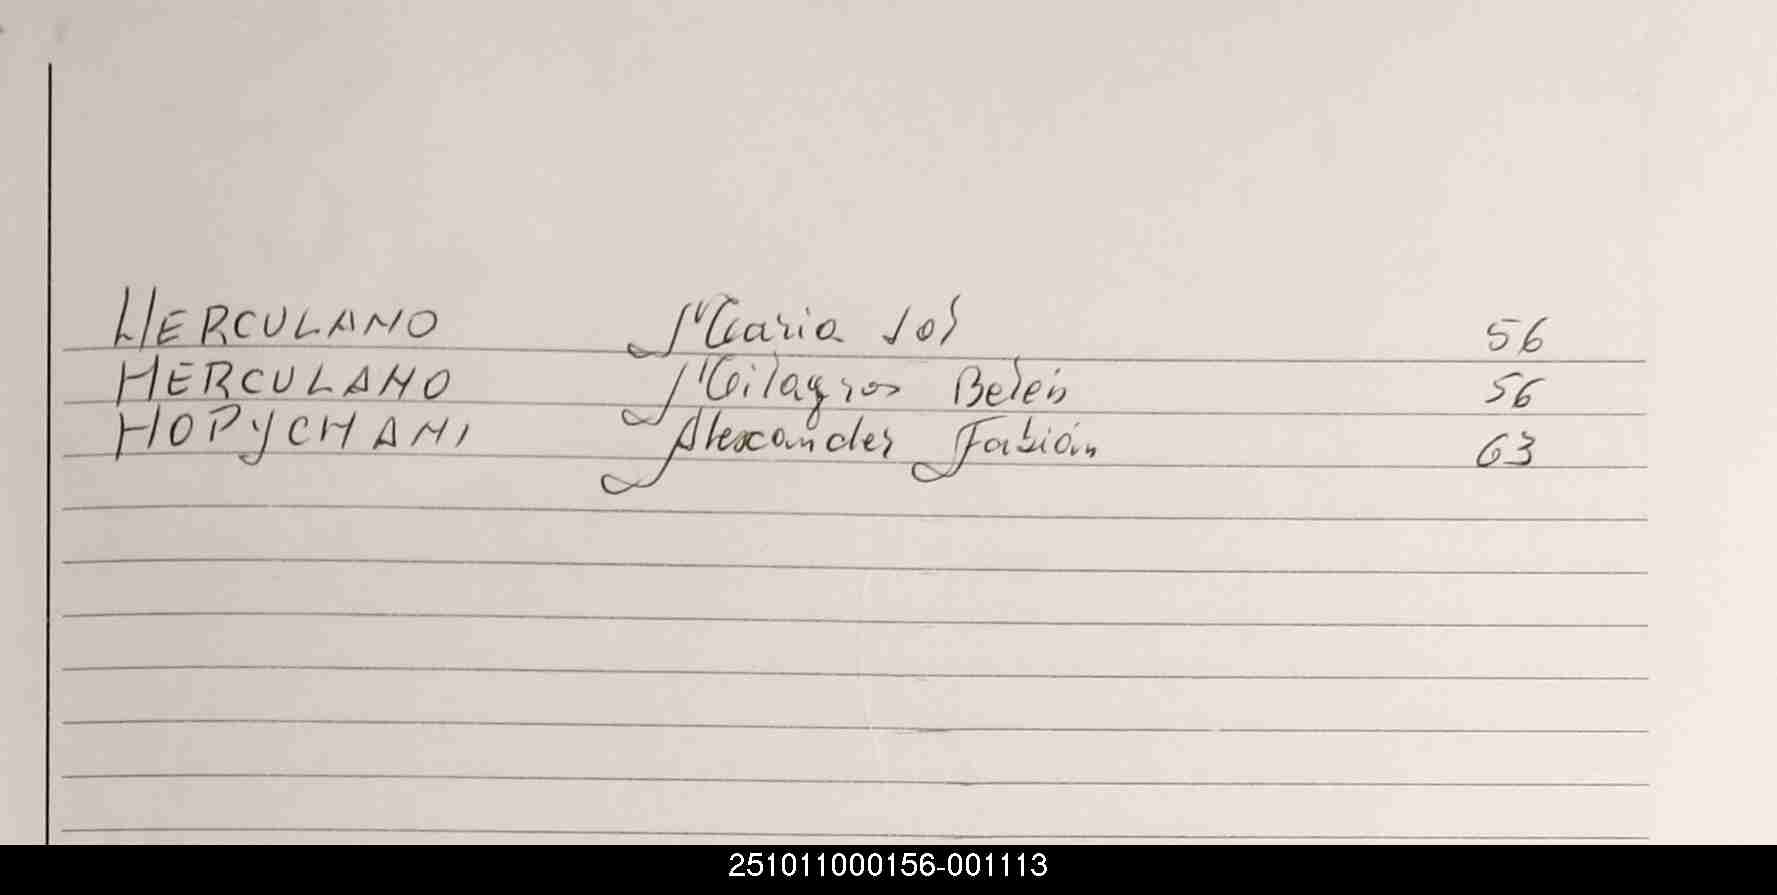 HERCULANO Maria Sol 56
HERCULANO Milagros Belén 56
HOPYCHANI Alexander Fabián 63
251011000156-001113